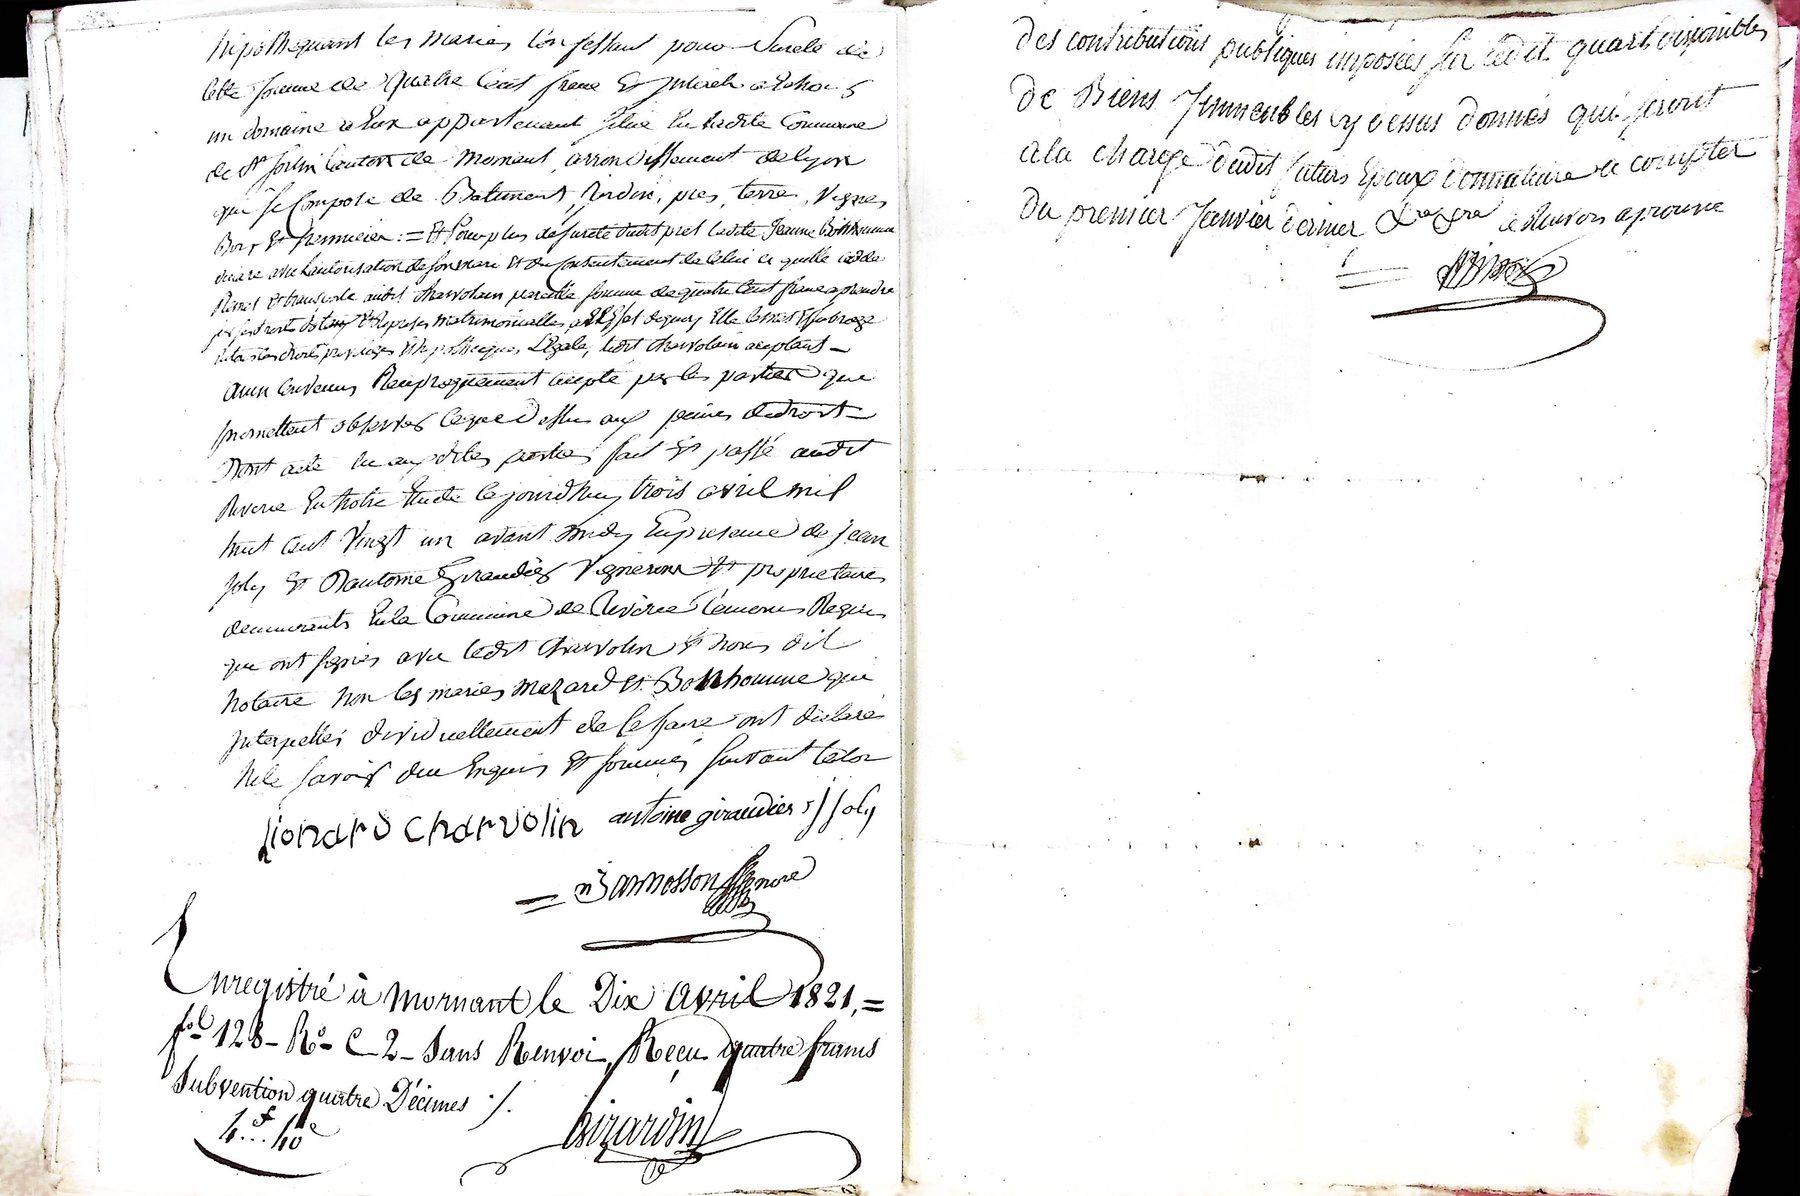 hipothequant les maries Confessant pour Sureté de
cette somme de quatre Cent franc Et
un domaine a Eux appartenant situé En ladite Commune
de St Canton de Mornant, arrondissement de Lyon
qui se Compose de Batiment, Jardin, pres, terre, Vignes
Bois Et = Et pour plus de sureté dudit pret ladite Jeanne Bonhomme
avec l'autorisation de son mari Et du Consentement de celui ci quelle cedde
Remet Et transporte audit Charvolin pareille somme de quatre Cent franc a prendre
matrimonialles a l'Effet dequoy Elle le met Et subroge
hipotheques Legale, ledit Charvolin aceptant
ainsi Convenus Reciproquement acepté par les parties que
promettent observer Ceque Dessus aux peines de droit
Dont acte lu aux dites parties fait Et passé audit
Riverie En notre Etude Cejourdhuy trois avril mil
huit Cent Vingt un avant midy En presence de Jean
Joly Et D'antoine Giraudier Vignerons Et proprietaires
demeurants En la Commune de Riverie Temoins Requis
qui ont signés avec ledit Charvolin Et nous dit
Notaire non les maries Mazard Et Bonhomme qui
Interpellés dividuellement de Ce faire ont déclarés
ne le savoir Enquis Et sommés suivant la loi
Lionard Charvolin antoine giraudier J Joly
= Jamosson
Enregistré à Mornant le Dix avril 1821, =
fol 128 - Ro C 2 - Sans Renvoi, Reçu quatre francs
Subvention quatre Décimes ./.
4f...40c
Girardin
des contributions publiques imposées sur ledit quart disponible
de Biens Immeubles cy dessus donnés qui seront
a la charge dudit futurs Epoux donnataire a compter
du premier Janvier dernier le Renvoi aprouvé